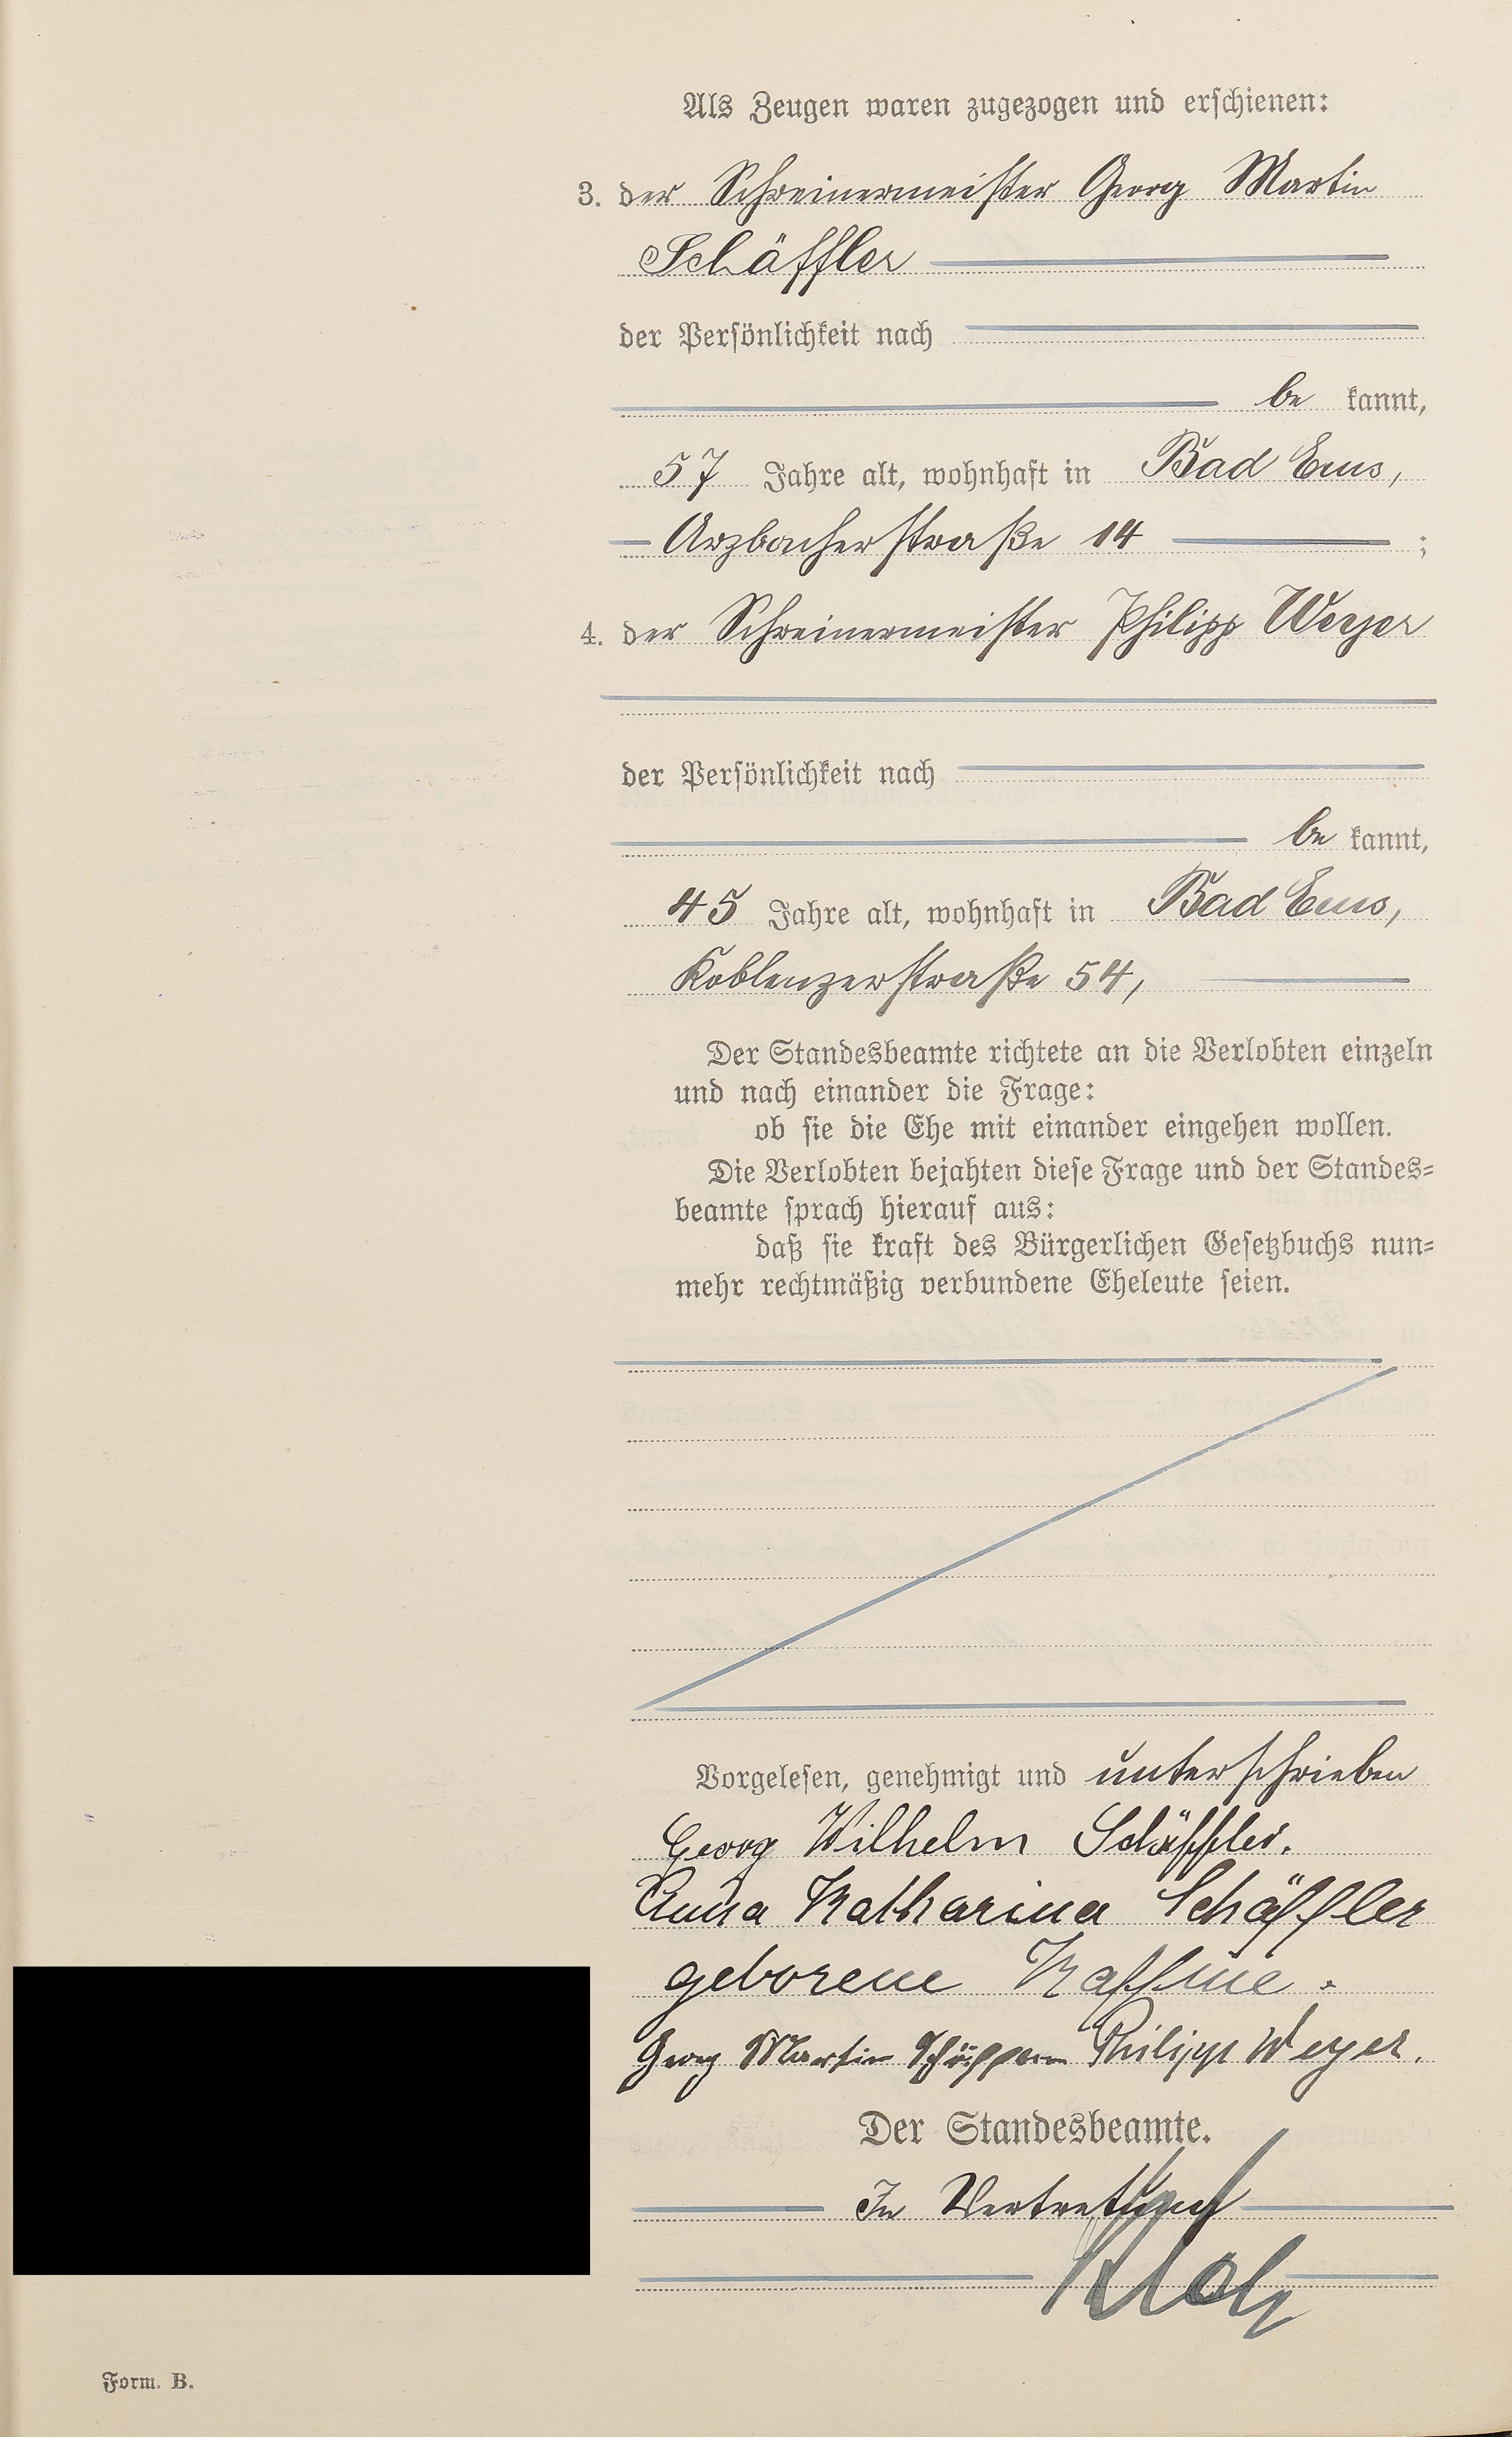 Als Zeugen waren zugezogen und erschienen:
3. der Schreinermeister Georg Martin
Schäffler
der Persönlichkeit nach
be kannt,
57 Jahre alt, wohnhaft in Bad Ems,
Arzbacherstraße 14 ;
4. der Schreinermeister Philipp Weyer
der Persönlichkeit nach
be kannt,
45 Jahre alt, wohnhaft in Bad Ems,
Koblenzerstraße 54,
Der Standesbeamte richtete an die Verlobten einzeln
und nach einander die Frage:
ob sie die Ehe mit einander eingehen wollen.
Die Verlobten bejahten diese Frage und der Standes-
beamte sprach hierauf aus:
daß sie kraft des Bürgerlichen Gesetzbuchs nun-
mehr rechtmäßig verbundene Eheleute seien.
Vorgelesen, genehmigt und unterschrieben
Georg Wilhelm Schäffler.
Anna Katharina Schäffler
geborene
Georg Martin Philipp Weyer.
Der Standesbeamte.
In Vertretung
Form. B.